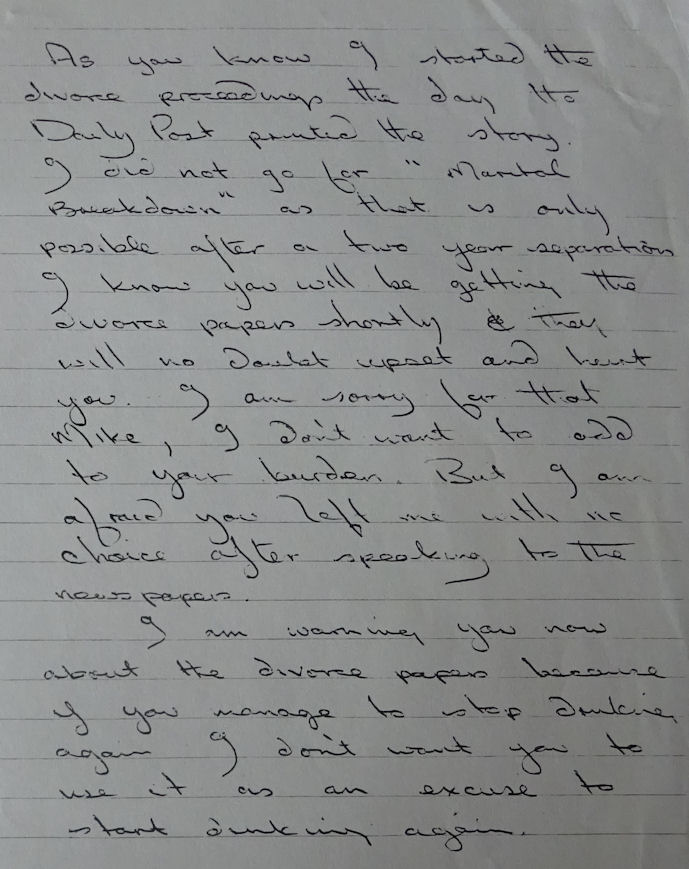 As you know I started the
divorce proceedings the day the
Daily Post printed the story.
I did not go for "Marital
Breakdown" as that is only
possible after a two year separation
I know you will be getting the
divorce papers shortly & they
will no doubt upset and hurt
you. I am sorry for that
Mike, I don't want to add
to your burden. But I am
afraid you left me with no
choice after speaking to the
newspapers.
I am warning you now
about the divorce papers because
if you manage to stop drinking
again I don't want you to
use it as an excuse to
start drinking again.